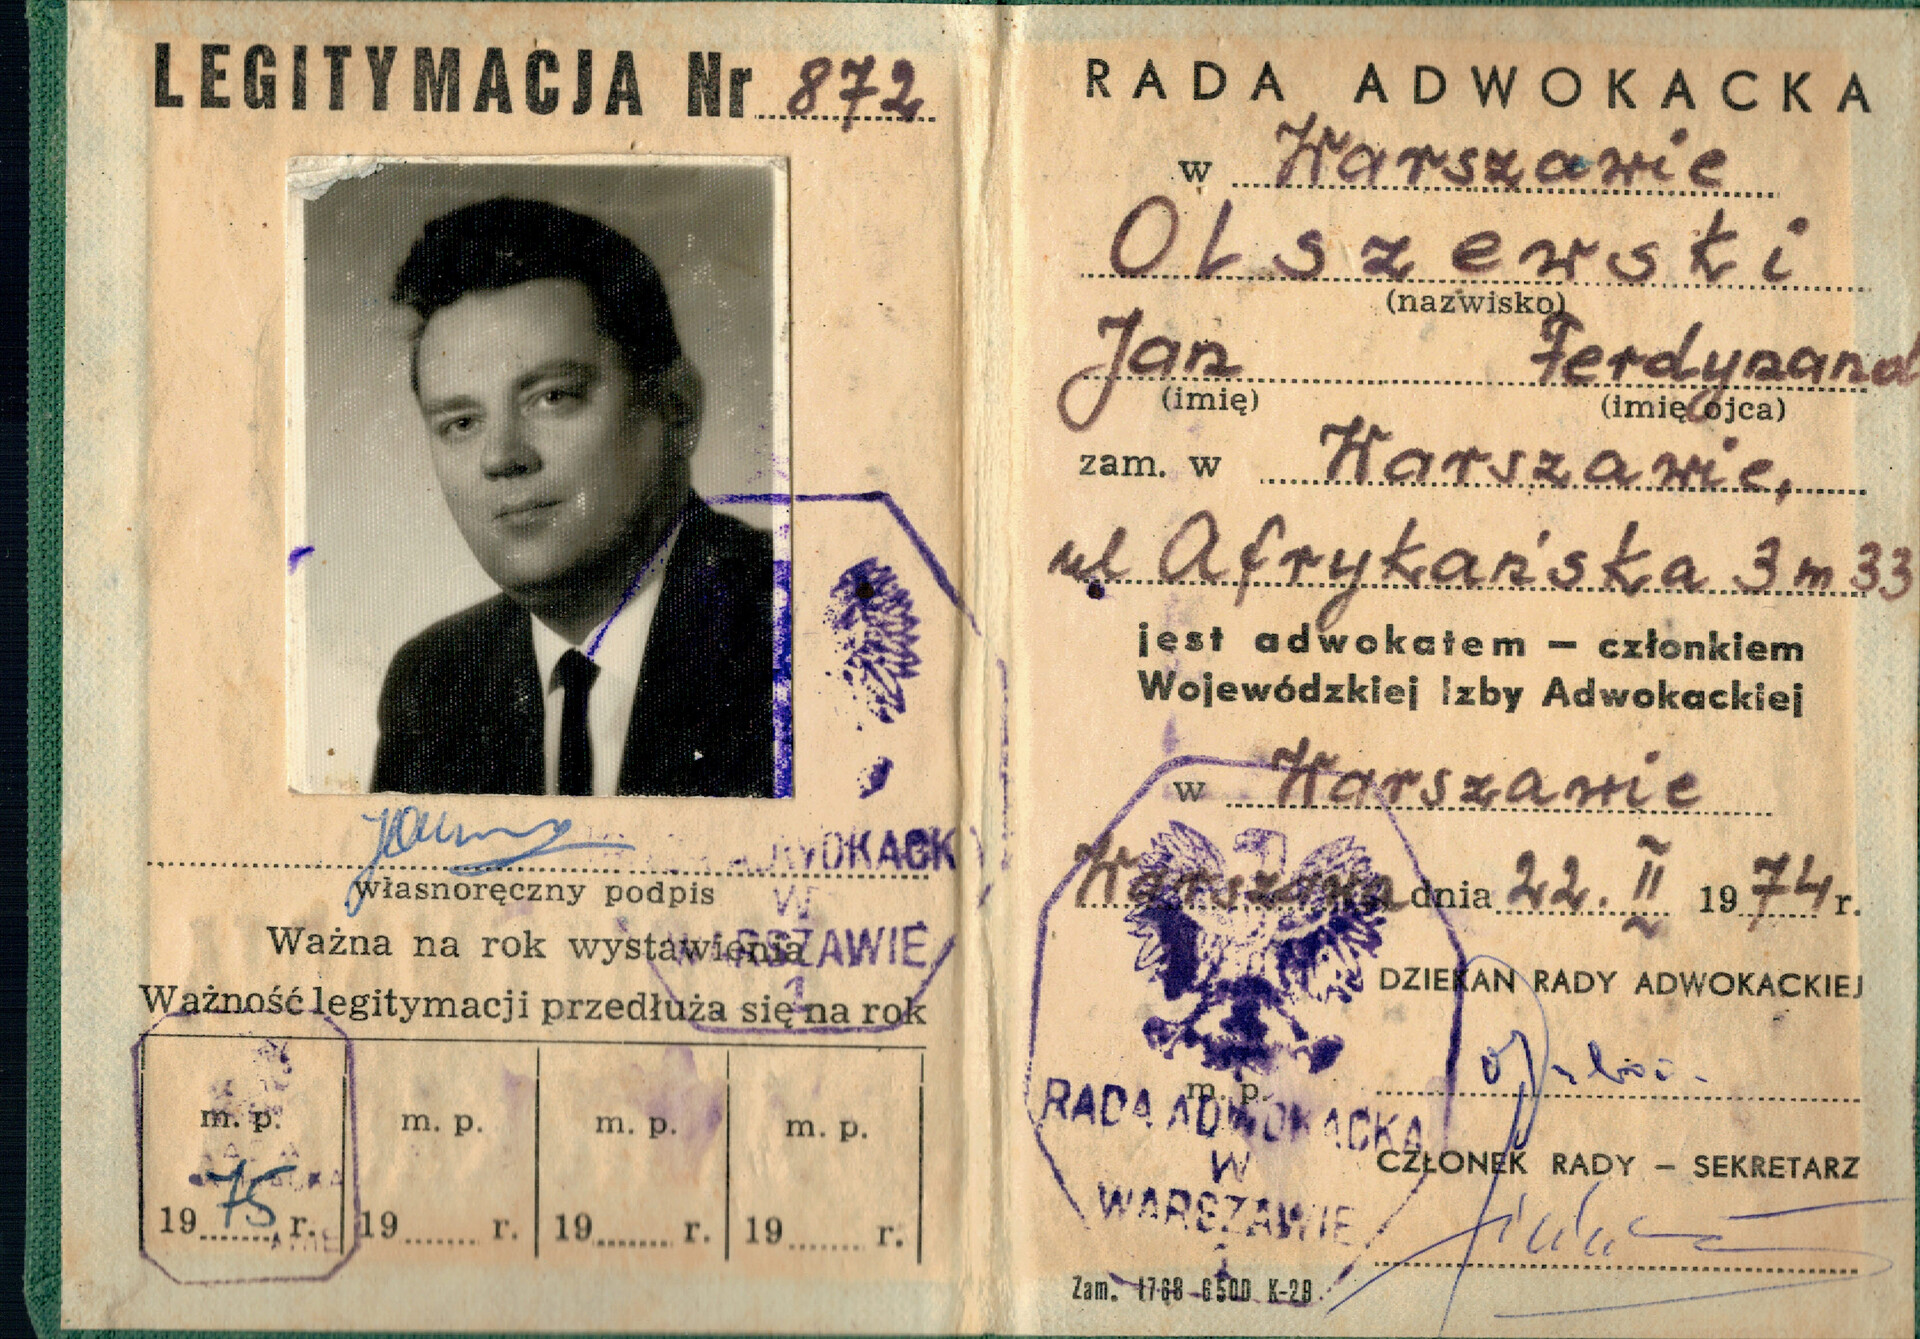 LEGITYMACJA Nr 872
własnoręczny podpis
Ważna na rok wystawienia
Ważność legitymacji przedłuża się na rok
m. p. m. p. m. p. m. p.
1975 r. 19 r. 19 r. 19 r.
ADWOKACK
W
WARSZAWIE
1
RADA ADWOKACKA
w Warszawie
Olszewski
(nazwisko)
Jan Ferdynand
(imię) (imię ojca)
zam. w Warszawie,
ul Afrykańska 3 m 33
jest adwokatem — członkiem
Wojewódzkiej Izby Adwokackiej
w Warszawie
Warszawa dnia 22. II 1974 r.
DZIEKAN RADY ADWOKACKIEJ
m. p.
RADA ADWOKACKA
W
WARSZAWIE
1
CZŁONEK RADY — SEKRETARZ
Zam. 1768 6500 K-29